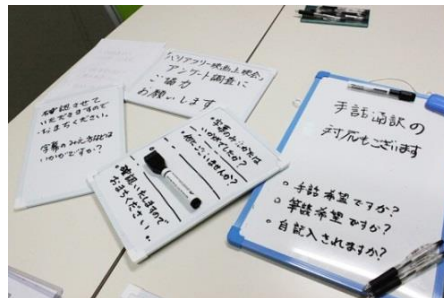 「バリアフリー映画上映会」
アンケート調査に
ご協力
お願いします
確認させて
いただきますので
おまちください。
字幕のみえ方などは
いかがですか?
字幕のみえかたは
いかがでしたか?
確認いたしますので
おまちください。
手話通訳の
対応もございます
手話希望ですか?
筆談希望ですか?
自記入されますか?